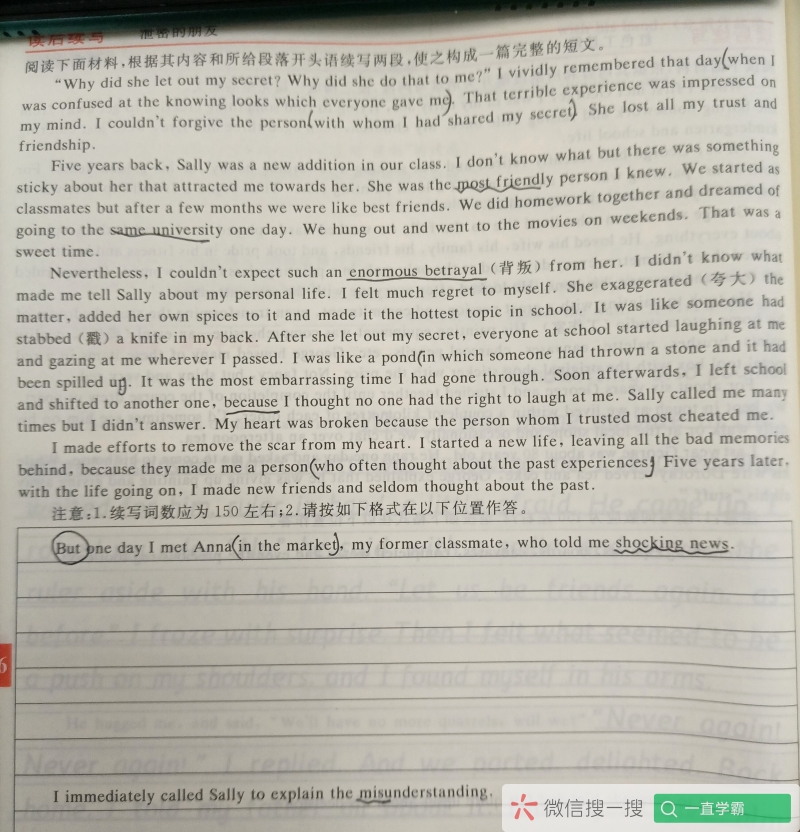 读后续写 泄密的朋友
阅读下面材料,根据其内容和所给段落开头语续写两段,使之构成一篇完整的短文。
“Why did she let out my secret? Why did she do that to me?” I vividly remembered that day(when I
was confused at the knowing looks which everyone gave me). That terrible experience was impressed on
my mind. I couldn't forgive the person(with whom I had shared my secret). She lost all my trust and
friendship.
Five years back, Sally was a new addition in our class. I don't know what but there was something
sticky about her that attracted me towards her. She was the most friendly person I knew. We started as
classmates but after a few months we were like best friends. We did homework together and dreamed of
going to the same university one day. We hung out and went to the movies on weekends. That was a
sweet time.
Nevertheless, I couldn't expect such an enormous betrayal (背叛) from her. I didn't know what
made me tell Sally about my personal life. I felt much regret to myself. She exaggerated (夸大) the
matter, added her own spices to it and made it the hottest topic in school. It was like someone had
stabbed (戳) a knife in my back. After she let out my secret, everyone at school started laughing at me
and gazing at me wherever I passed. I was like a pond(in which someone had thrown a stone and it had
been spilled up). It was the most embarrassing time I had gone through. Soon afterwards, I left school
and shifted to another one, because I thought no one had the right to laugh at me. Sally called me many
times but I didn't answer. My heart was broken because the person whom I trusted most cheated me.
I made efforts to remove the scar from my heart. I started a new life, leaving all the bad memories
behind, because they made me a person(who often thought about the past experiences). Five years later,
with the life going on, I made new friends and seldom thought about the past.
注意:1.续写词数应为 150 左右;2.请按如下格式在以下位置作答。
But one day I met Anna(in the market), my former classmate, who told me shocking news.
ruler aside with his hand. "Let us be friends again, as
before." I froze with surprise. Then I felt what seemed to be
a push on my shoulders, and I found myself in his arms.
He hugged me, and said, "We'll have no more quarrels, will we?" "Never again!
Never again!" I replied. And we parted, delighted. Back
6
I immediately called Sally to explain the misunderstanding.
微信搜一搜 一直学霸